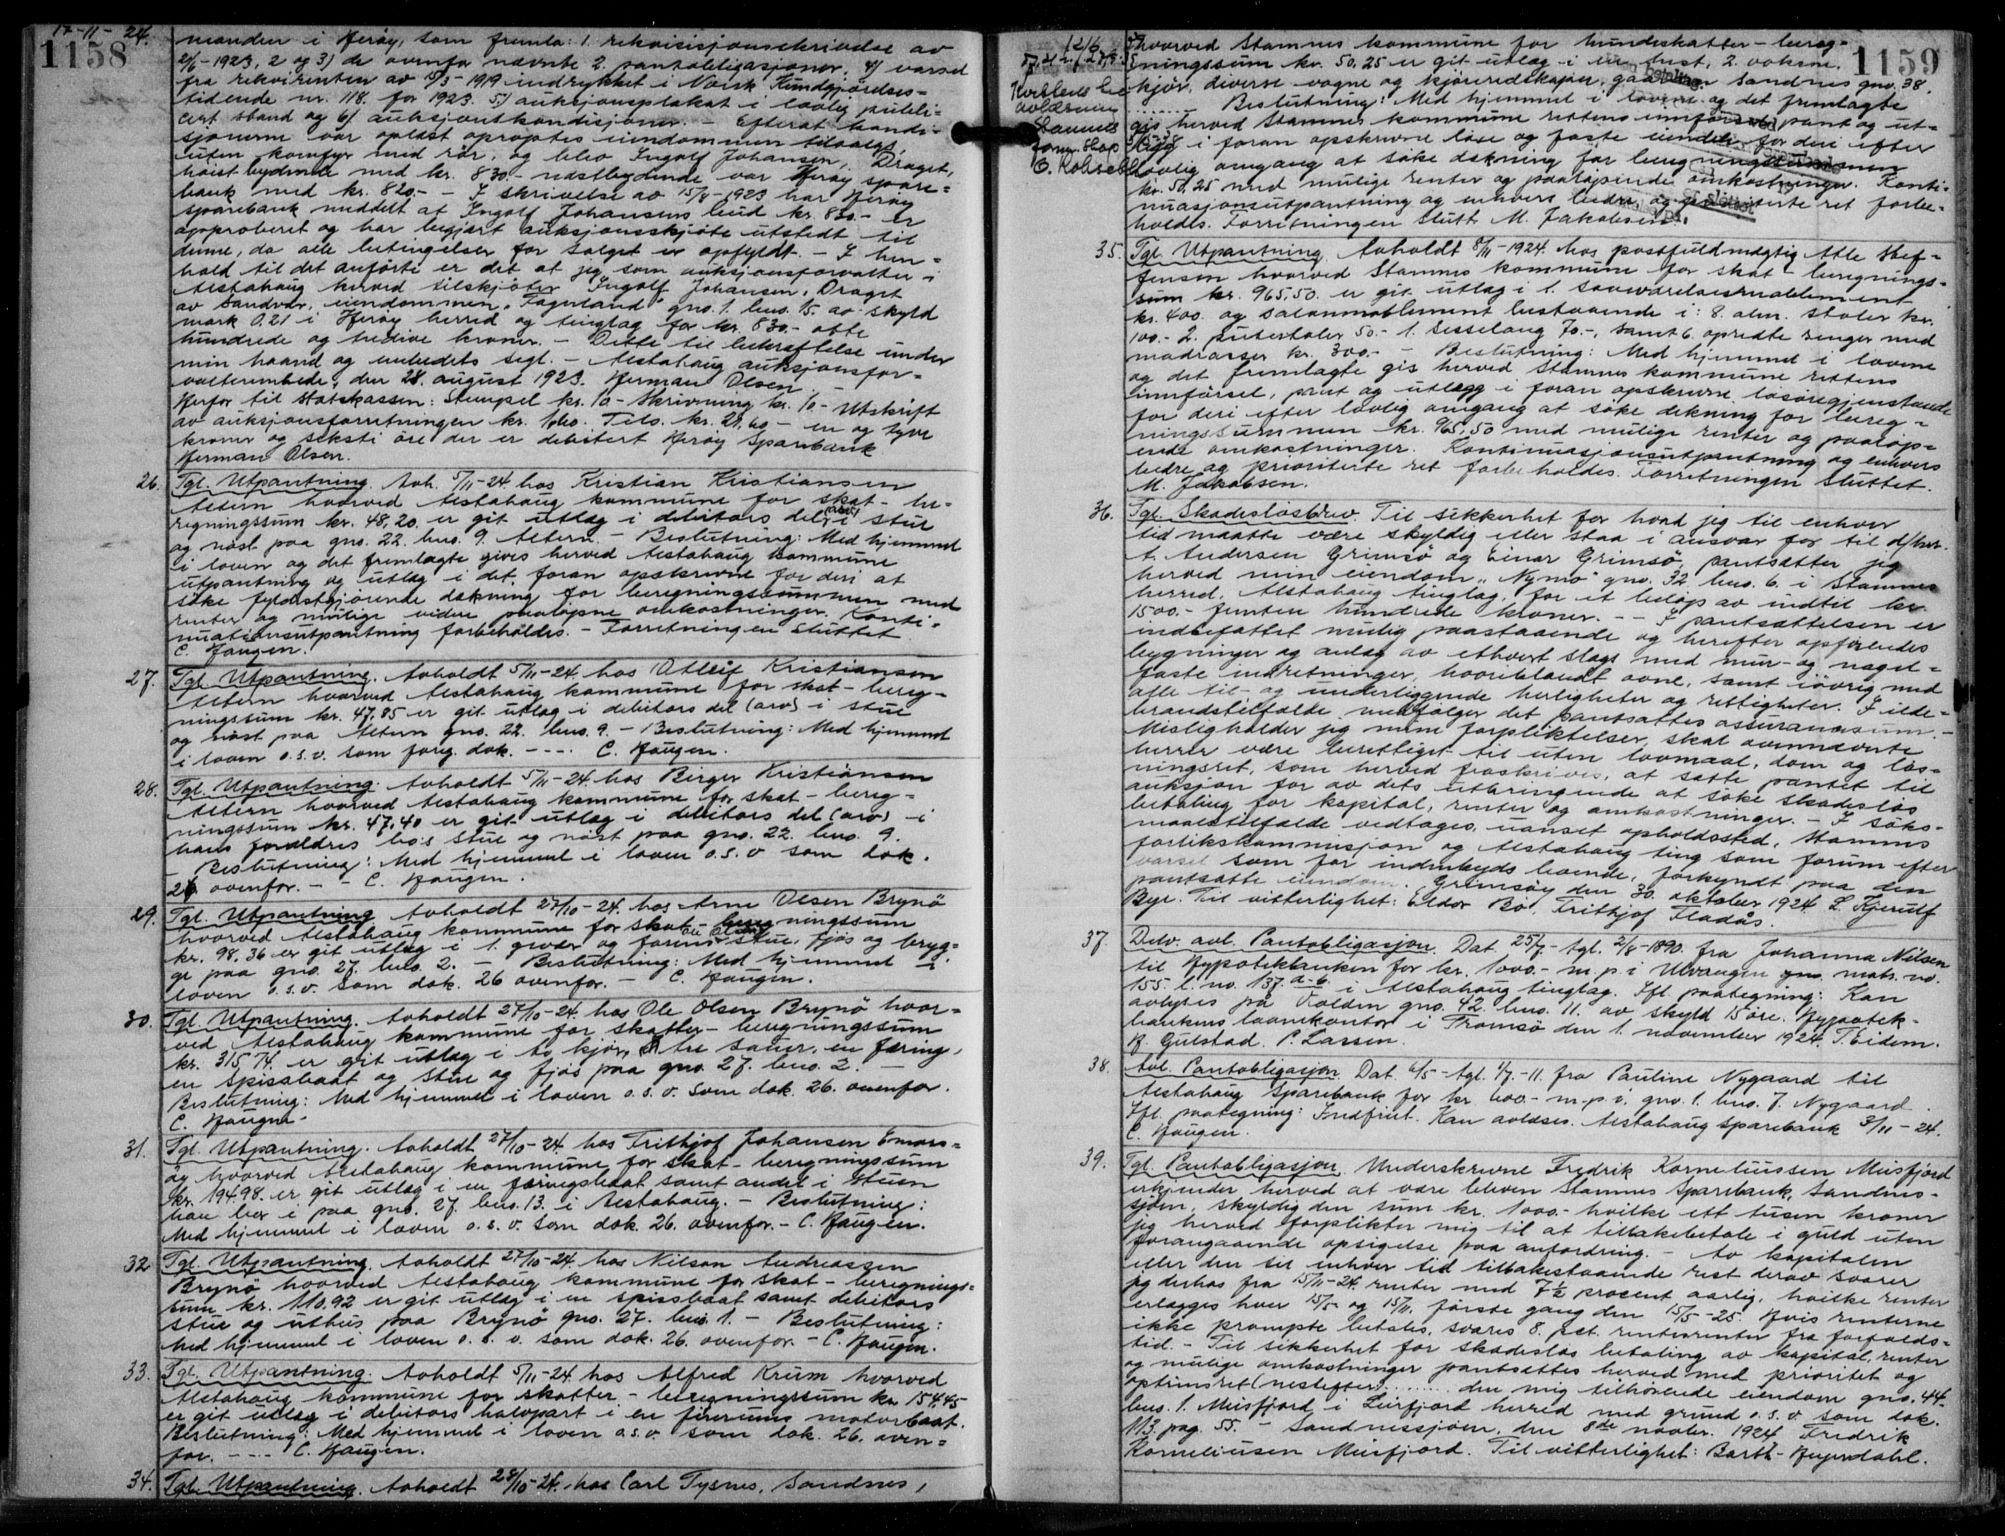 17-11-24.
1158
manden i Herøy, som fremla: 1. rekvisisjonsskrivelse av
2/6-1923, 2 og 3) de ovenfor nævnte 2. pantobligasjoner, 4) varsel
fra rekvirenten av 15/3-1919 indrykket i Norsk Kundgjørelses-
tidende nr. 118. for 1923. 5) auksjonsplakat i lovlig publi-
cert stand og 6) auksjonskondisjoner. - Efterat kondi-
sjonerne var oplæst oproptes eiendommen tilsalgs,
uten komfyr med rör, og blev Ingolf Johansen, Draget,
høistbydende med kr. 830.- næstbydende var Herøy spare-
bank med kr. 820.- - I skrivelse av 15/8-1923 har Herøy
sparebank meddelt at Ingolf Johansens bud kr. 830.- er
approberet og har begjært auksjonsskjøte utstedt til
denne, da alle betingelser for salget er opfyldt. - I hen-
hold til det anførte er det at jeg som auksjonsforvalter i
Alstahaug herved tilskjøter Ingolf Johansen, Draget
av Sandvær, eiendommen "Fagerland" gno. 1. bno. 15. av skyld
mark 0.21 i Herøy herred og tinglag for kr. 830.- otte
hundrede og tredive kroner. - Dette til bekræftelse under
min haand og embedets segl. - Alstahaug auksjonsfor-
valterembede, den 28. august 1923. Herman Olsen
Herfor til statskassen: Stempel kr. 10.- Skrivning kr. 10.- Utskrift
av auksjonsforretningen kr. 1.60. Tils. kr. 21,60 - en og tyve
kroner og seksti øre der er debitert Herøy Sparebank
Herman Olsen.
26. Tgl. Utpantning. Avh. 5/11-24. hos Kristian Kristiansen
Altern hvorved Alstahaug kommune for skat - be-
regningssum kr. 48,20. er git utlæg i debitors del (arv) i stue
og nöst paa gno. 22. bno. 9. Altern. - Beslutning: Med hjemmel
i loven og det fremlagte gives herved Alstahaug kommune
utpantning og utlæg i det foran opskrevne for deri at
søke fyldestgjørende dækning for beregningssummen med
renter og mulige videre paaløpne omkostninger. Konti-
nuationsutpantning forbeholdes. - Forretningen sluttet.
C. Haugen.
27. Tgl. Utpantning. Avholdt 5/11-24. hos Otleif Kristiansen
Altern hvorved Alstahaug kommune for skat - bereg-
ningssum kr. 47.85 er git utlæg i debitors del (arv) i stue
og nöst paa Altern gno. 22. bno. 9. - Beslutning: Med hjemmel
i loven o.s.v. som forrig. dok. - --- C. Haugen.
28. Tgl. Utpantning. Avholdt 5/11-24. hos Birger Kristiansen
Altern hvorved Alstahaug kommune for skat - bereg-
ningssum kr. 47.40 er git utlæg i debitors del (arv) - i
hans forældres bo's stue og nöst paa gno. 22. bno. 9.
- Beslutning: Med hjemmel i loven o.s.v. som dok.
26 ovenfor. - - C. Haugen.
29. Tgl. Utpantning Avholdt 27/10-24. hos Arne Olsen Brynö
hvorved Alstahaug kommune for skat - beregningssum
kr. 98,36 er git utlæg i 1. gevær og stue, fjøs og bryg-
ge paa gno. 27. bno. 2. - Beslutning: Med hjemmel i
loven o.s.v. som dok. 26 ovenfor. - C. Haugen.
30. Tgl. Utpantning. Avholdt 27/10-24. hos Ole Olsen Brynö hvor-
ved Alstahaug kommune for skatter - beregningssum
kr. 315,74. er git utlæg i to kjør, tre sauer, en færing,
en spissbaat og stue og fjøs paa gno. 27. bno. 2. -
Beslutning: Med hjemmel i loven o.s.v. som dok. 26. ovenfor.
C. Haugen.
31. Tgl. Utpantning. Avholdt 27/10-24. hos Frithjof Johansen Emars-
øy hvorved Alstahaug kommune for skat - beregningssum
kr. 194.98. er git utlæg i en færingsbaat samt andel i stuen
han bor i paa gno. 27. bno. 13. i Alstahaug. - Beslutning:
Med hjemmel i loven o.s.v. som dok. 26. ovenfor. - C. Haugen.
32 Tgl. Utpantning. Avholdt 27/10-24. hos Nilson Andreassen
Brynö hvorved Alstahaug kommune for skat - beregnings-
sum kr. 110.92 er git utlæg i en spissbaat samt debitors
stue og uthus paa Brynö gno. 27. bno. 1. - Beslutning:
Med hjemmel i loven o.s.v. som dok. 26. ovenfor. - C. Haugen.
33. Tgl. Utpantning. Avholdt 5/11-24 hos Alfred Krüm hvorved
Alstahaug kommune for skatter - beregningssum kr. 154.45
er git utlæg i debitors halvpart i en firerums motorbaat.
Beslutning: Med hjemmel i loven o.s.v. som dok. 26. oven-
for. - --- C. Haugen.
34. Tgl. Utpantning. Avholdt 28/10-24. hos Carl Tysnes, Sandnes,
1159
hvorved Stamnes kommune for hundeskatter - bereg-
ningssum kr. 50,25 er git utlæg i en hest, 2. voksne
kjør, diverse vogne og kjøreredskaper, gaarden Sandnes gno. 38.
- Beslutning: Med hjemmel i lovene og det fremlagte
gis herved Stamnes kommune rettens innførsel, pant og ut-
læg i foran opskrevne løse og faste eiendele for deri efter
lovlig omgang at söke dekning for beregningssummen
kr. 50,25 med mulige renter og paaløpende omkostninger. Konti-
nuasjonsutpantning og enhvers bedre og prioriterte ret forbe-
holdes. Forretningen slutt. M. Jakobsen.
35. Tgl. Utpantning. Avholdt 8/11-1924. hos postfuldmægtig Atle Stef-
fensen hvorved Stamnes kommune for skat - beregnings-
sum kr. 965,50. er git utlæg i 1. soveværelsesmøblement
kr. 400. og salonmøblement bestaaende i: 8. alm. stoler kr.
100.- 2. puterstoler 50.- 1. sesselong 70.-, samt 6 opredte senger med
madrasser kr. 300.- - Beslutning: Med hjemmel i lovene
og det fremlagte gis herved Stamnes kommune rettens
innførsel, pant og utlegg i foran opskrevne løsøregjenstande
for deri efter lovlig omgang at söke dekning for bereg-
ningssummen kr. 965,50 med mulige renter og paaløp-
ende omkostninger. Kontinuasjonsutpantning og enhvers
bedre og prioriterte ret forbeholdes. Forretningen sluttet.
M. Jakobsen.
36. Tgl. Skadesløsbrev. Til sikkerhet for hvad jeg til enhver
tid maatte være skyldig eller staa i ansvar for til d/hrr.
A. Andersen Grimsö og Einar Grimsö, pantsætter jeg
herved min eiendom "Nymo" gno. 32 bno. 6. i Stamnes
herred, Alstahaug tinglag, for et beløp av indtil kr.
1500.- femten hundrede kroner. - - I pantsættelsen er
indbefattet mulig paastaaende og herefter opførendes
bygninger og anlæg av ethvert slags med mur- og nagel-
faste indretninger, hvoriblandt ovne, samt iøvrig med
alle til- og underliggende herligheter og rettigheter. I ilde-
brandstilfælde medfølger det pantsattes assuransesum. -
Misligholder jeg mine forpliktelser, skal ovennævnte
herrer være berettiget til uten lovmaal, dom og løs-
ningsret, som herved fraskrives, at sætte pantet til
auksjon for av dets utbringende at søke skadesløs
betaling for kapital, renter og omkostninger. - I søks-
maalstilfælde vedtages, uanset opholdssted, Stamnes
forlikskommisjon og Alstahaug ting som forum efter
varsel som for indenbyds boende, forkyndt paa den
pantsatte eiendom. Grimsöy den 30. oktober 1924 L. Kjerulf
Bye. Til vitterlighet: Eldor Bö. Frithjof Fladås.
37. Delv. avl. Pantobligasjon. Dat. 25/7- tgl. 2/8-1890. fra Johanna Nilsen
til Hypotekbanken for kr. 1000.- m.p.i Ulvangen matr. no.
155 l. no. 137. a-b. i Alstahaug tinglag. Ifl. paategning: Kan
avlyses på Volden gno. 42. bno. 11. av skyld 15 öre. Hypotek-
bankens laanekontor i Tromsö den 1. november 1924. T. Eidem.
R. Gulstad. P. Lassen.
38. Avl. Pantobligasjon. Dat. 6/5- tgl. 1/7-11. fra Pauline Nygaard til
Alstahaug Sparebank for kr. 600.- m.p.i. gno. 1. bno. 7. Nygaard.
Ifl. paategning: Indfriet. Kan avlæses. Alstahaug sparebank 3/11-24.
C. Haugen.
39. Tgl. Pantobligasjon. Underskrevne Fredrik Korneliussen Meisfjord
erkjender herved at være bleven Stamnes Sparebank, Sandnes-
sjøen, skyldig den sum kr. 1000.- hvilke ett tusen kroner
jeg herved forplikter mig til at tilbakebetale i guld uten
forangaaende opsigelse paa anfordring. - Av kapitalen
eller den til enhver tid tilbakestaaende rest derav svarer
jeg derhos fra 15/11-24. renter med 7½ procent aarlig, hvilke renter
erlægges hver 15/5- og 15/11. første gang den 15/5-25. Hvis renterne
ikke prompte betales, svares 8. pct. rentesrenter fra forfalds-
tid. - Til sikkerhet for skadesløs betaling av kapital, renter
og mulige omkostninger pantsættes herved med prioritet og
optrinsret (nestefter) ....... den mig tilhørende eiendom gno. 44.
bno. 1. Meisfjord i Leirfjord herred med grund o.s.v. som dok.
113. pag. 55. - Sandnessjøen, den 8de novbr. 1924. Fredrik
Korneliussen Meisfjord. Til vitterlighet: Barth-Heyerdahl.